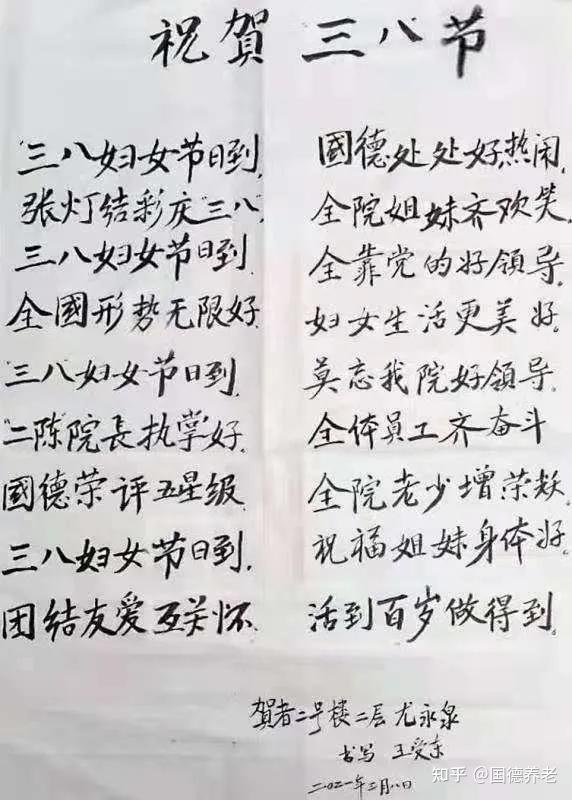 祝賀三八节
三八妇女节日到, 國德处处好热闹,
张灯结彩庆三八, 全院姐妹齐欢笑,
三八妇女节日到, 全靠党的好领导.
全國形势无限好, 妇女生活更美好.
三八妇女节日到, 莫忘我院好领导,
二陈院長执掌好, 全体员工齐奋斗
國德荣评五星级 全院老少增荣耀,
三八妇女节日到, 祝福姐妹身体好.
团结友爱互关怀, 活到百岁做得到.
賀者二号楼二层 尤永泉
书写 王受东
二〇二一年三月八日
知乎 @国德养老